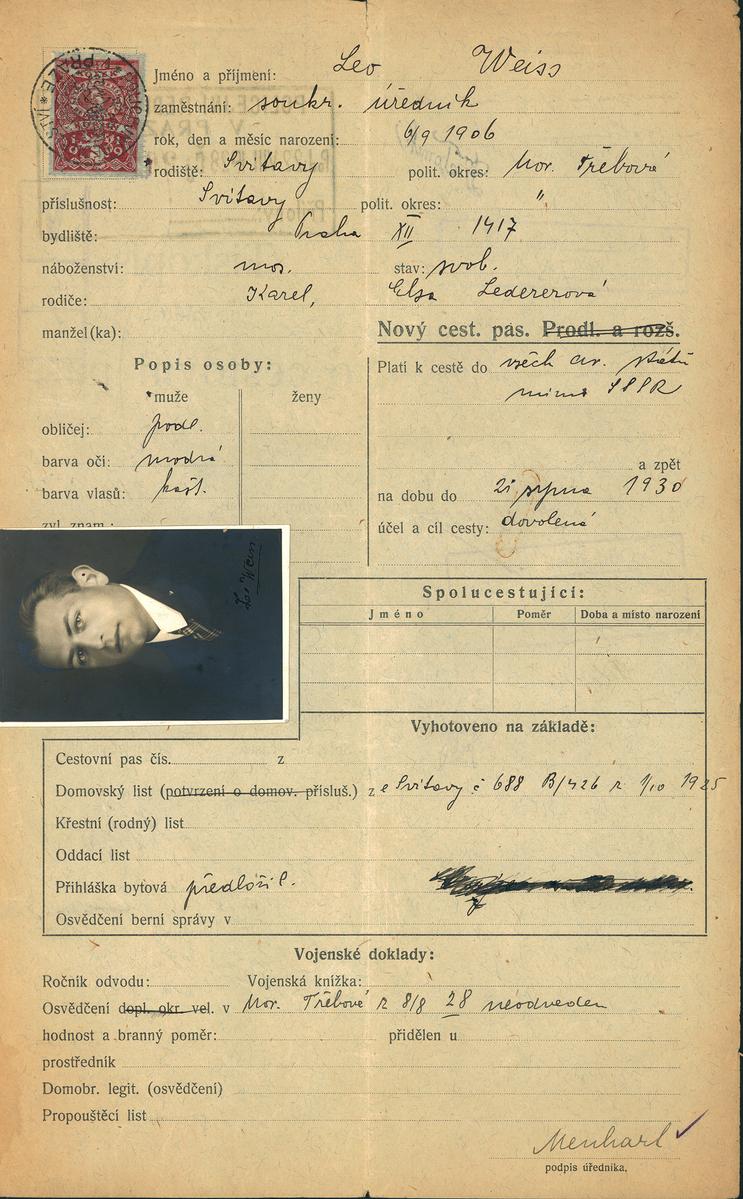 Jméno a příjmení: Leo Weiss
zaměstnání: soukr. úředník
rok, den a měsíc narození: 6/9 1906
rodiště: Svitavy polit. okres: Mor. Třebová
příslušnost: Svitavy polit. okres: "
bydliště: Praha XII 1417
náboženství: mos. stav: svob.
rodiče: Karel, Elsa Ledererová
manžel(ka):
Nový cest. pas. Prodl. a rozš.
Popis osoby:
muže ženy
obličej: podl.
barva očí: modrá
barva vlasů: kašt.
zvl. znam.:
Platí k cestě do všech ev. států
mimo SSSR
a zpět
na dobu do 21 srpna 1930
účel a cíl cesty: dovolená
Leo Weiss
Spolucestující:
Jméno Poměr Doba a místo narození
Vyhotoveno na základě:
Cestovní pas čís. z
Domovský list (potvrzení o domov. přísluš.) z e Svitavy č 688 B/426 z 1/10 1925
Křestní (rodný) list
Oddací list
Přihláška bytová předložil.
Osvědčení berní správy v
Vojenské doklady:
Ročník odvodu: Vojenská knížka:
Osvědčení dopl. okr. vel. v Mor. Třebové z 8/8 28 neodveden
hodnost a branný poměr: přidělen u
prostředník
Domobr. legit. (osvědčení)
Propouštěcí list
Menhart
podpis úředníka.